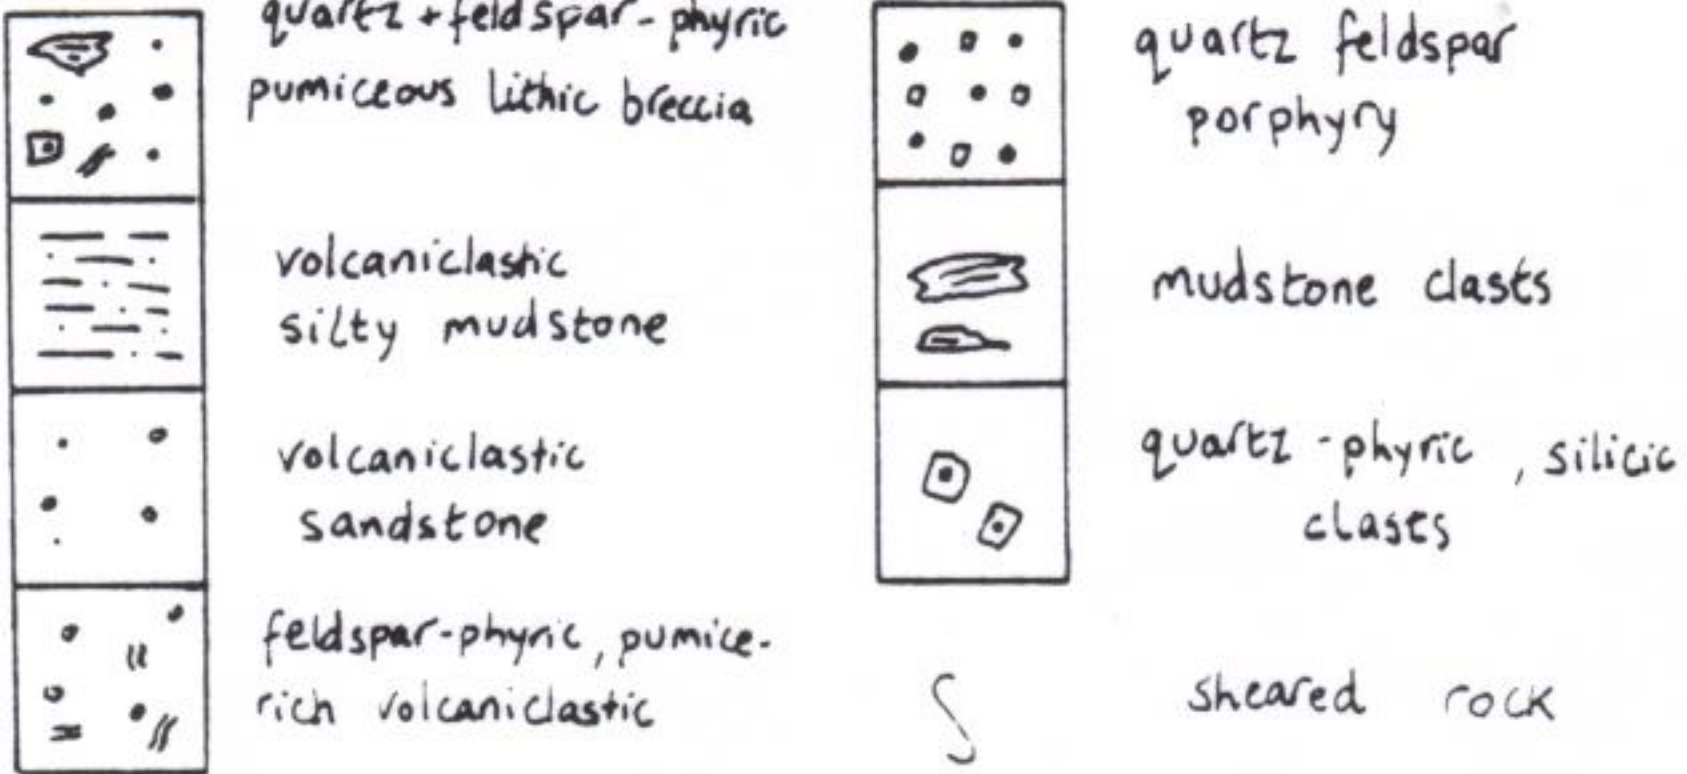 quartz + feldspar-phyric
pumiceous lithic breccia
volcaniclastic
silty mudstone
volcaniclastic
sandstone
feldspar-phyric, pumice-
rich volcaniclastic
quartz feldspar
porphyry
mudstone clasts
quartz-phyric, silicic
clasts
sheared rock